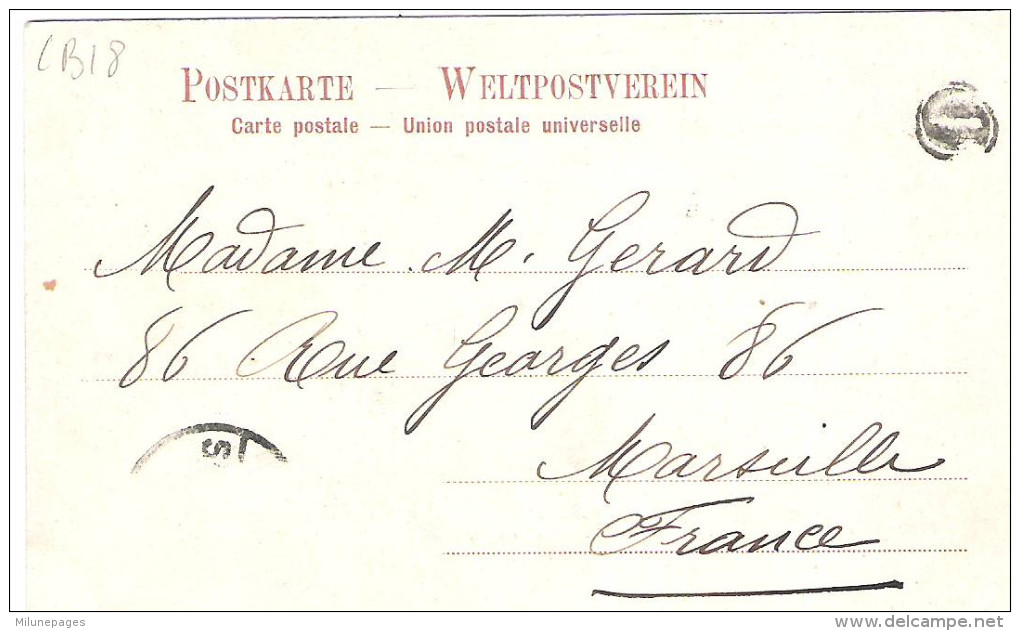 CB18
POSTKARTE — WELTPOSTVEREIN
Carte postale — Union postale universelle
Madame M. Gerard
86 Rue Georges 86
Marseille
France
S
Milunepages
delcampe.net